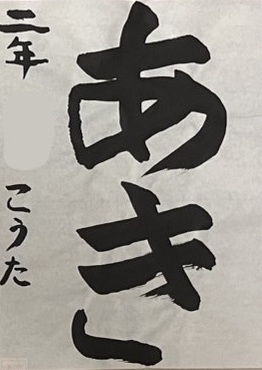 あき
二年
こうた